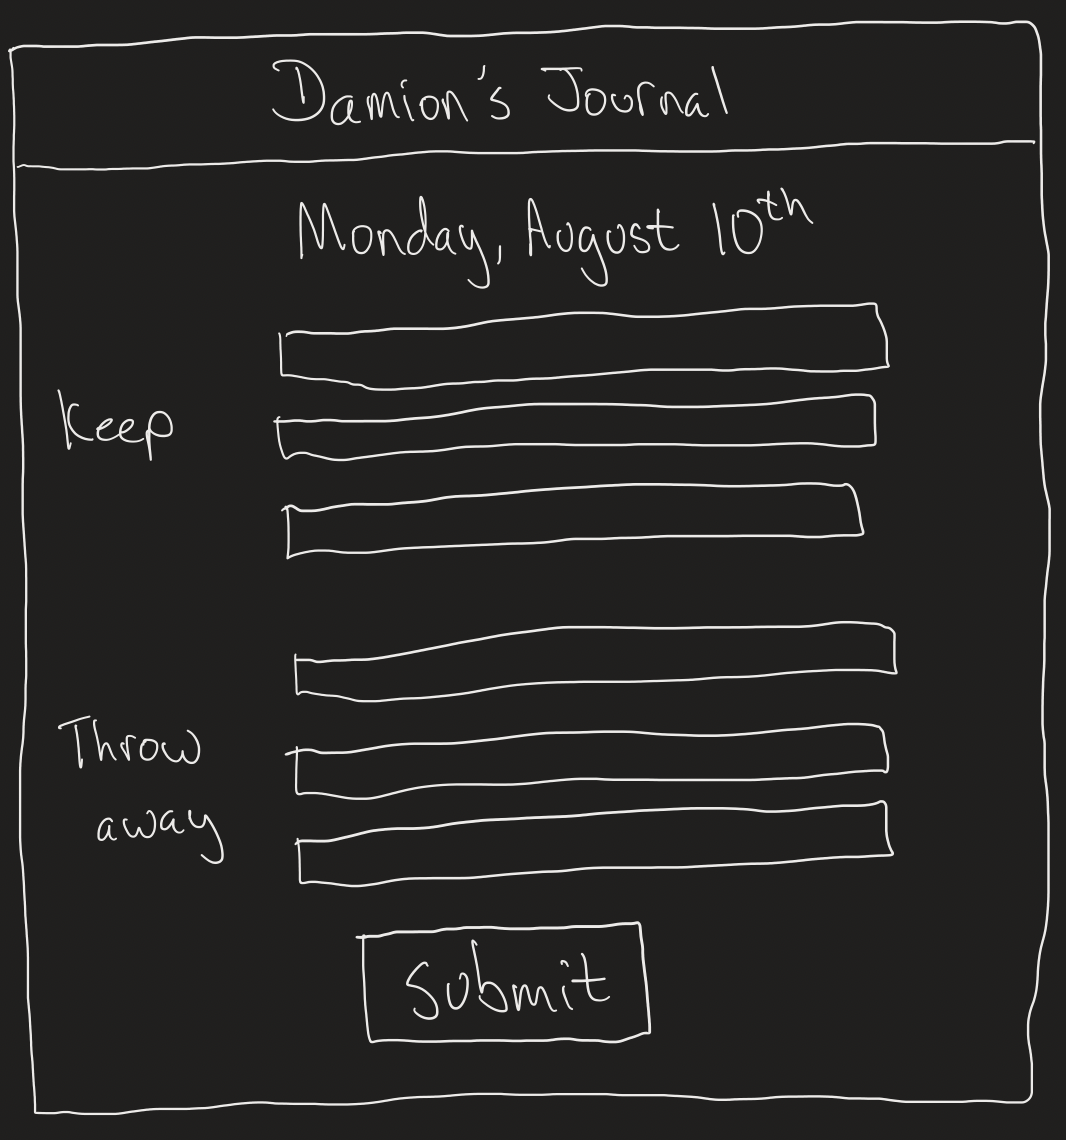 Damion's Journal
Monday, August 10th
Keep
Throw
away
Submit